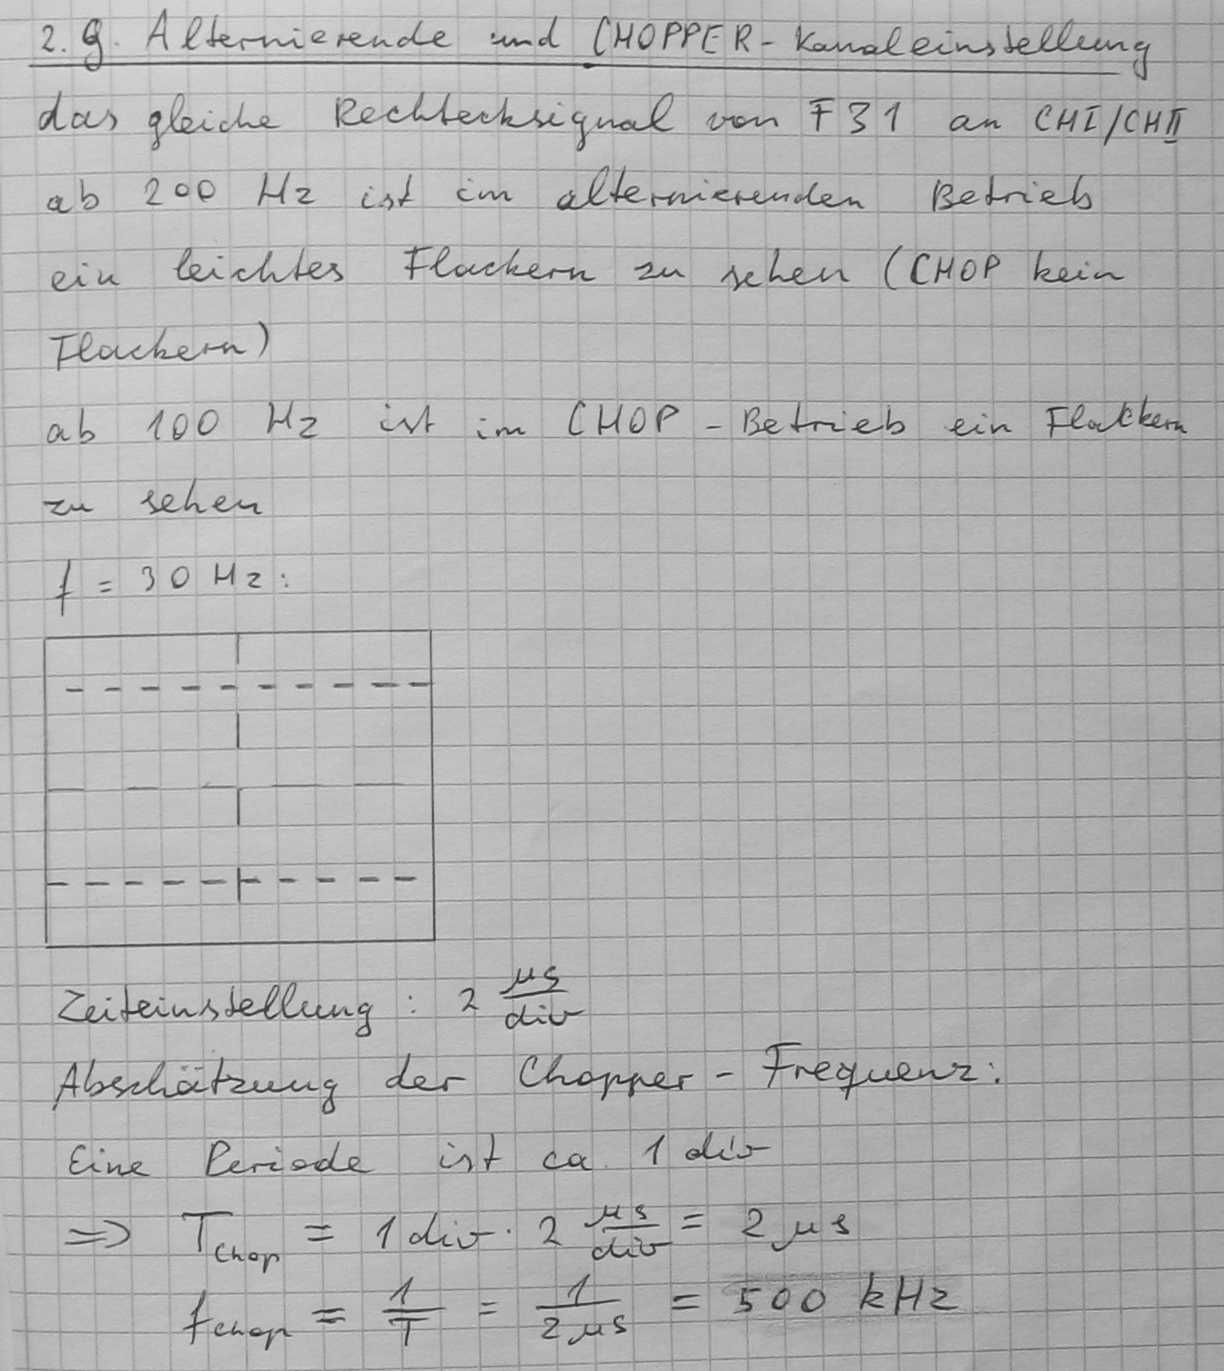 2.9. Alternierende und CHOPPER-Kanaleinstellung
das gleiche Rechtecksignal von F31 an CHI/CHII
ab 200 Hz ist im alternierenden Betrieb
ein leichtes Flackern zu sehen (CHOP kein
Flackern)
ab 100 Hz ist im CHOP-Betrieb ein Flackern
zu sehen
f = 30 Hz:
Zeiteinstellung: 2 µs/div
Abschätzung der Chopper-Frequenz:
Eine Periode ist ca. 1 div
⇒ T_Chop = 1 div · 2 µs/div = 2 µs
f_chop = 1/T = 1/2µs = 500 kHz